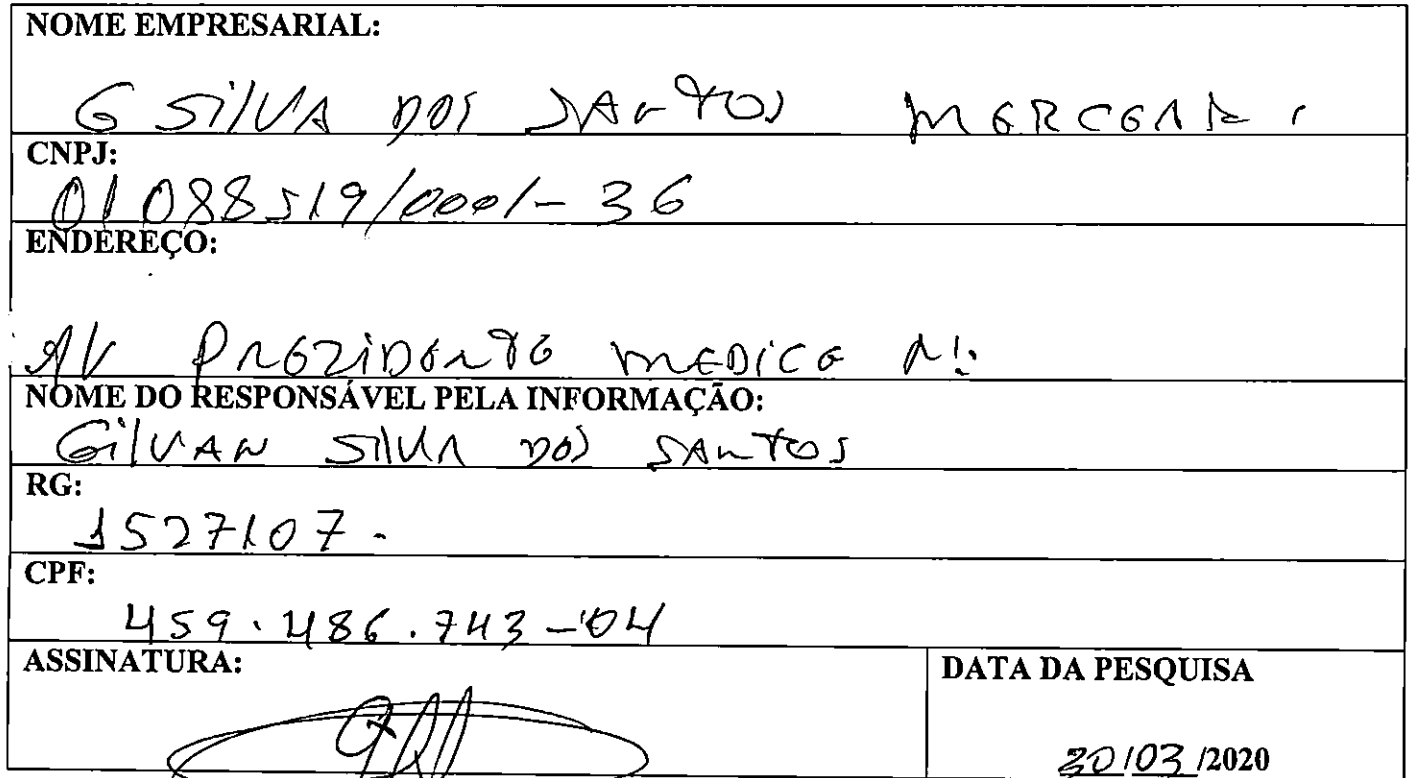 NOME EMPRESARIAL:
G SilVA DOS SANTOS MERCEARI
CNPJ:
01088519/0001-36
ENDEREÇO:
AV PREZIDENTE MEDICE
NOME DO RESPONSÁVEL PELA INFORMAÇÃO:
GilVAN SilVA DOS SANTOS
RG:
1527107.
CPF:
459.486.743-04
ASSINATURA:
DATA DA PESQUISA
30/03/2020